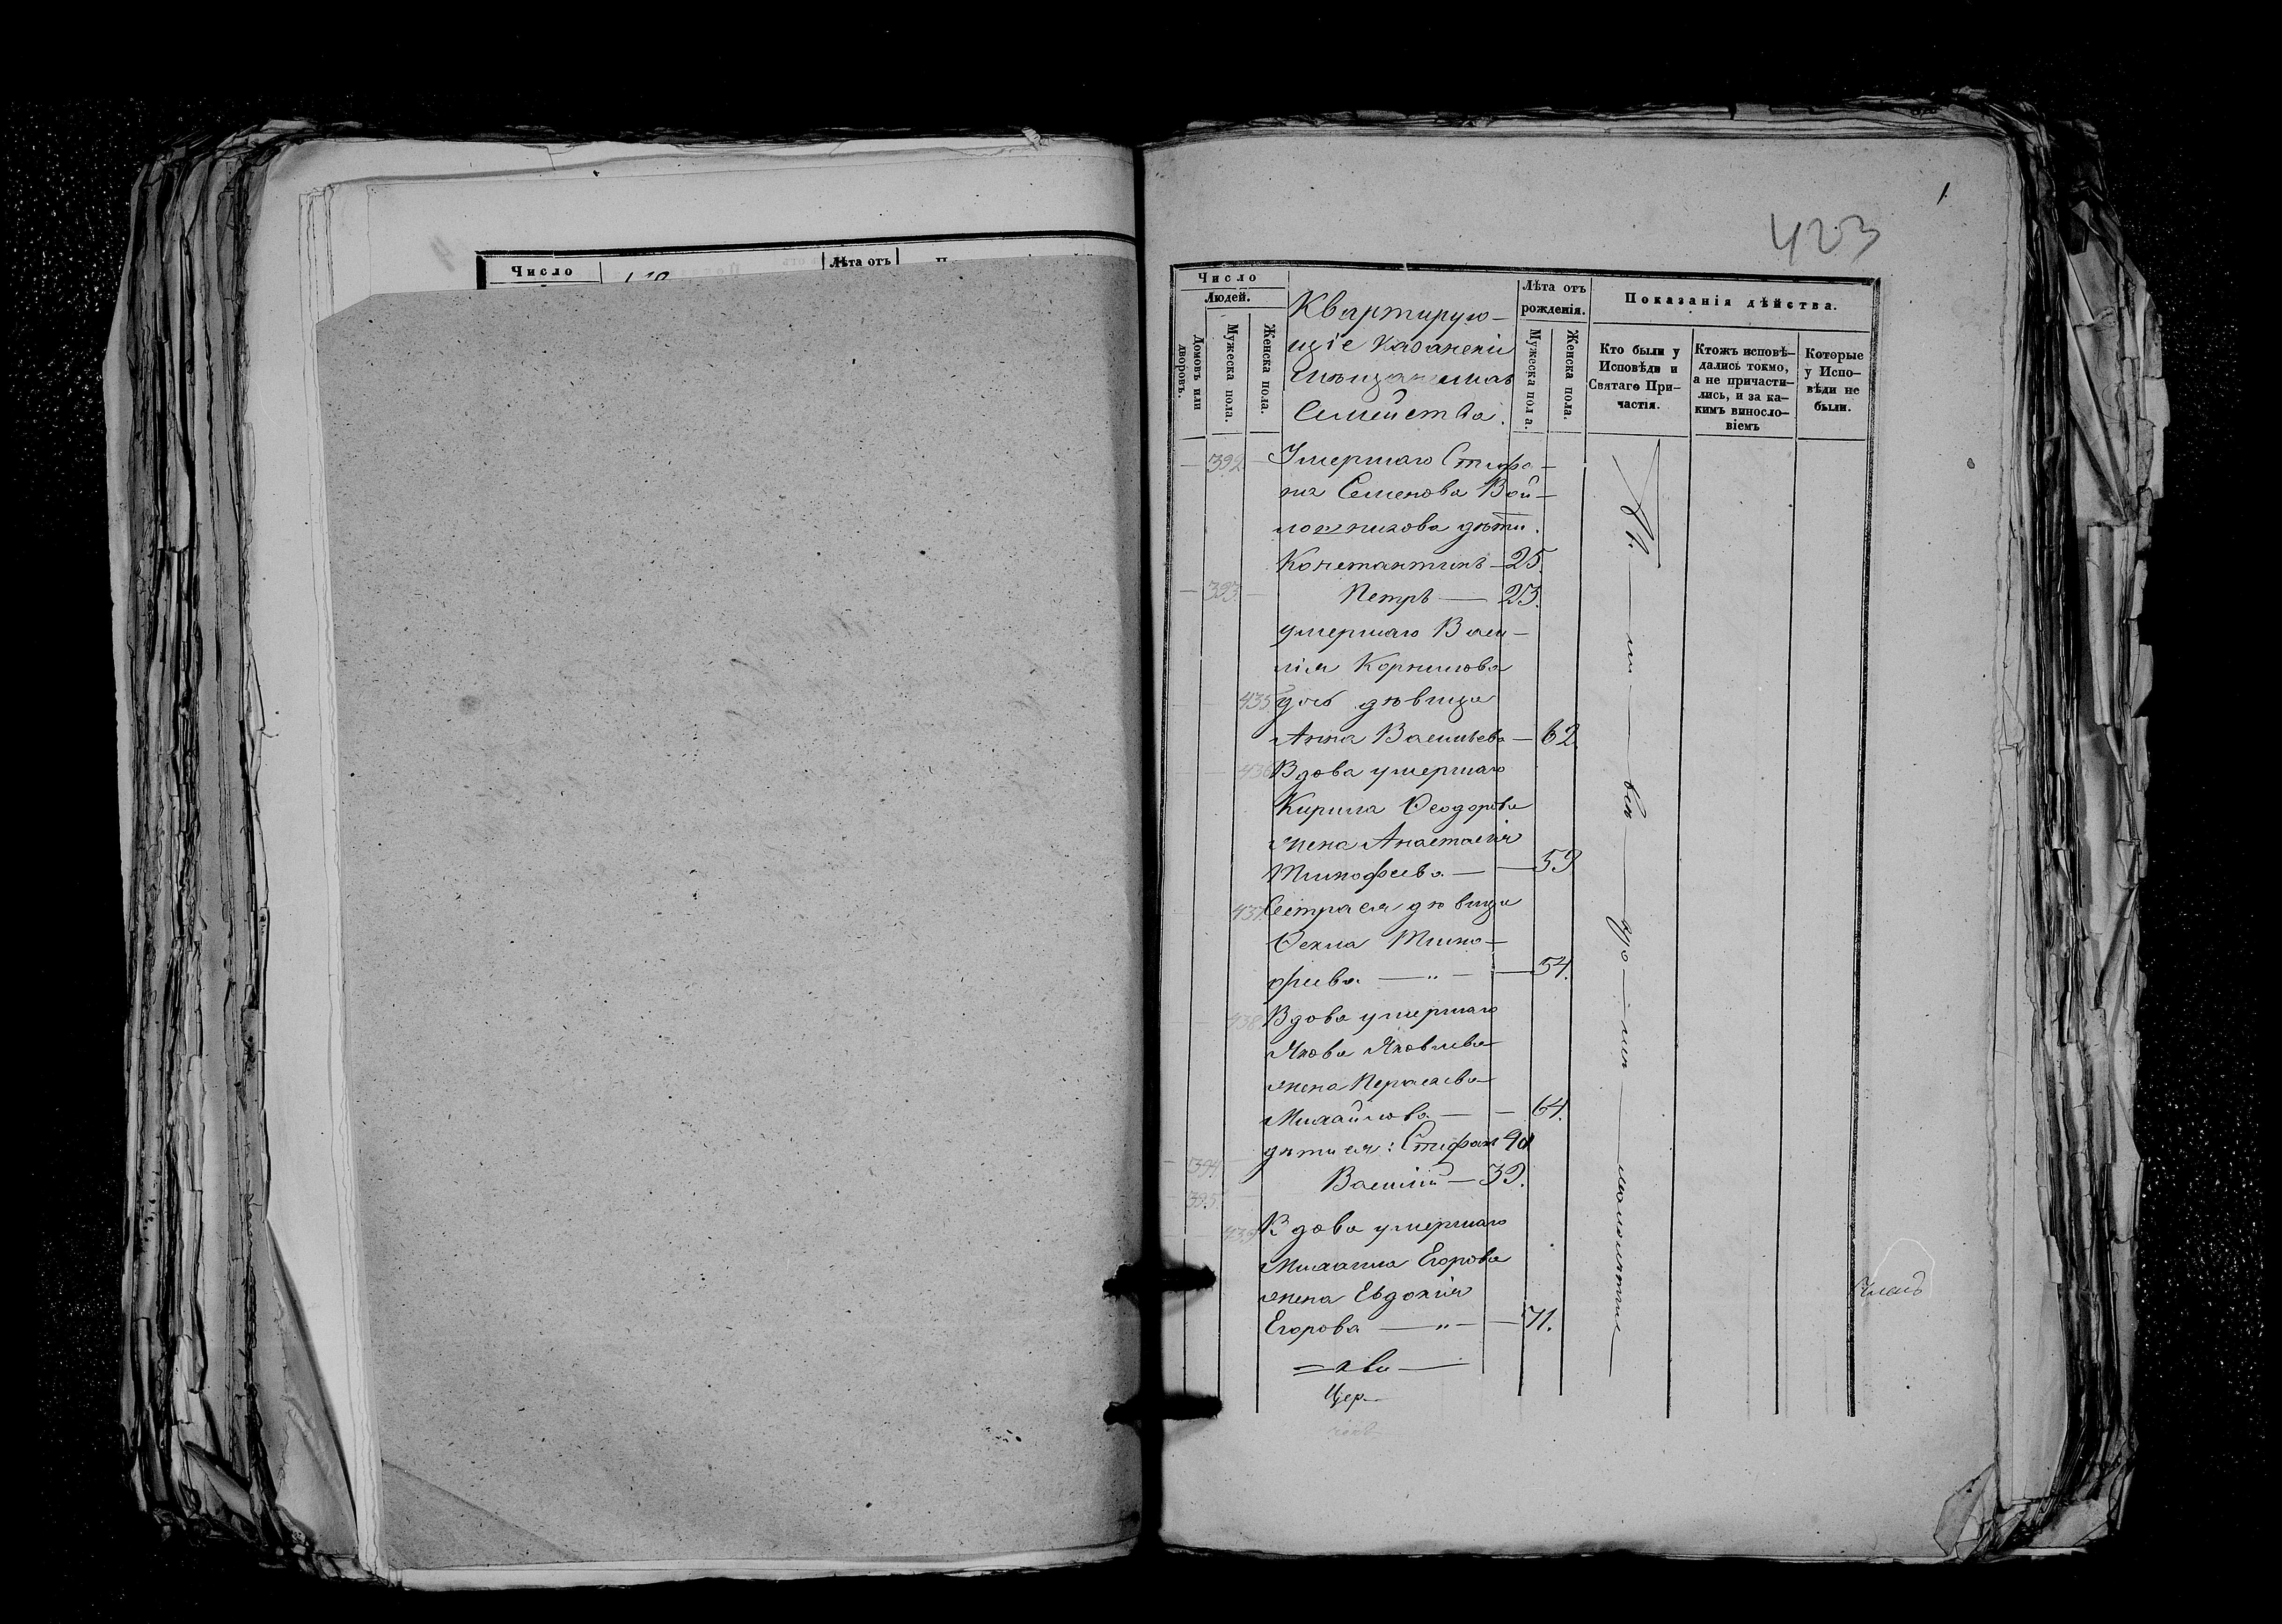 Число
Лѣта отъ
1
423
Число
Людей.
Домовъ или дворовъ.
Мужеска пола.
Женска пола.
Квартирую-
щіе Казанскіи
мѣщанскія
Семейства.
Лѣта отъ рожденія.
Мужеска пола.
Женска пола.
Показанія дѣйства.
Кто были у Исповѣди и Святаго Причастія.
Ктожъ исповѣ-дались токмо, а не причасти-лись, и за ка-кимъ винословіемъ
Которые у Испо-вѣди не были.
392 Умершаго Стефа-
на Семенова Вой-
лошникова дѣти.
Константинъ — 25.
393 Петръ — 23.
умершаго Васи-
лія Корнилова
435 дочь дѣвица
Анна Васильева — 62.
436 Вдова умершаго
Кирила Ѳеодорова
жена Анастасія
Тимофеева — 59
437 Сестра ея дѣвица
Ѳекла Тимо-
феева — „ — 54.
438 Вдова умершаго
Якова Яковлева
жена Параскева
Михайлова — 64.
394 дѣти ея: Стефан 40
395 Василій — 39.
439 Вдова умершаго
Михаила Егорова
жена Евдокія
Егорова — „ — 71.
Цер-